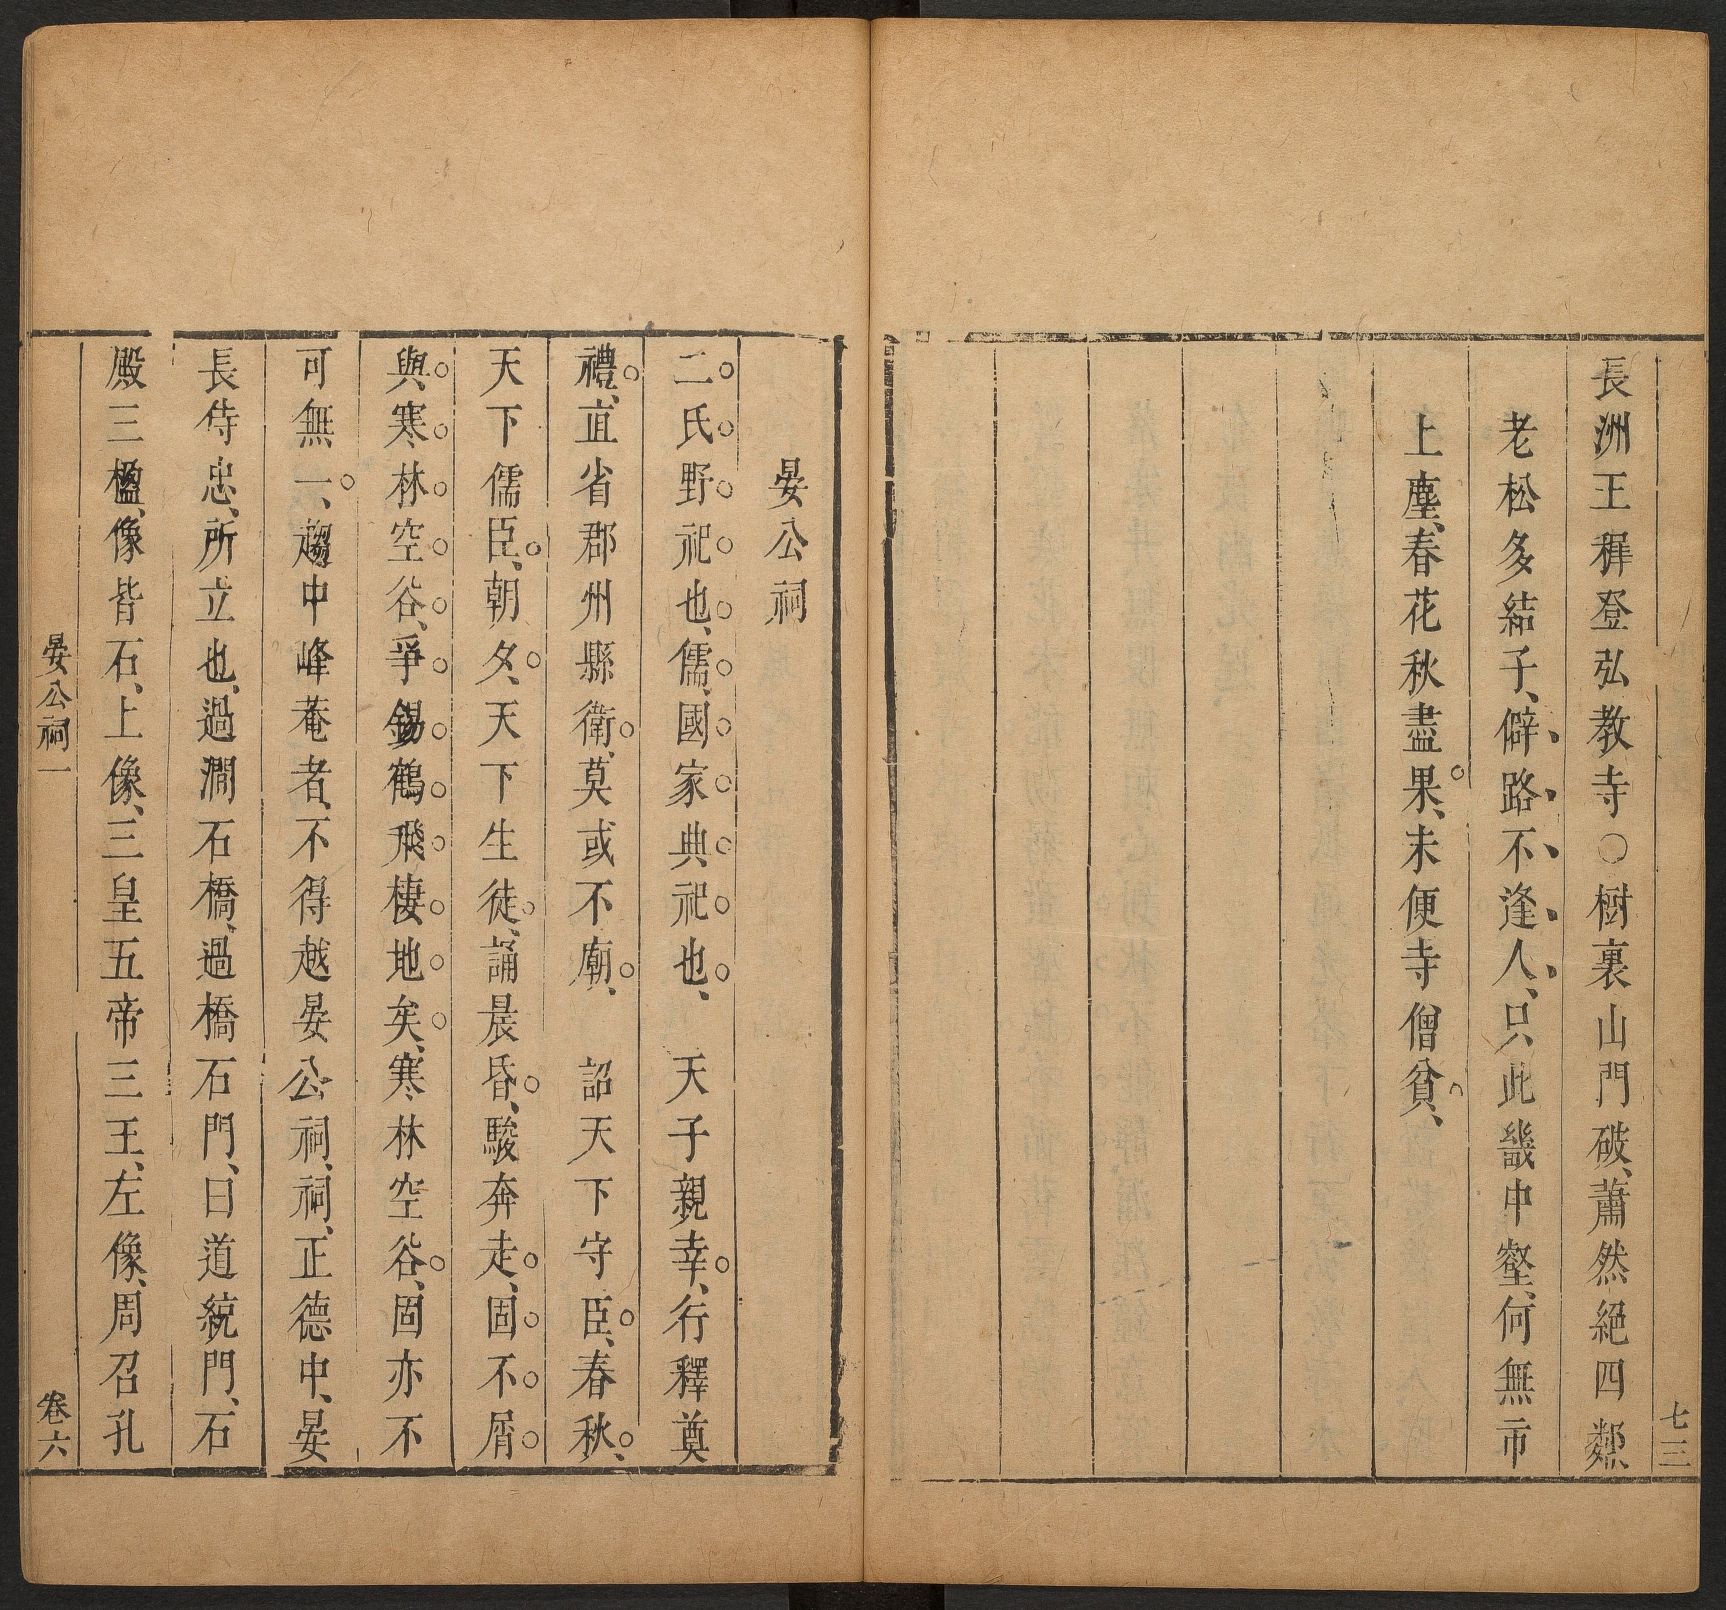 七三
長洲王穉登弘教寺○樹裏山門破、蕭然絕四鄰、
老松多結子、僻路不逢人、只此畿中壑、何無市
上塵、春花秋盡果、未便寺僧貧、
晏公祠
二氏野祀也、儒、國家典祀也、天子親幸、行釋奠
禮、直省郡州縣衛、莫或不廟、詔天下守臣、春秋、
天下儒臣、朝夕、天下生徒、誦晨昏、駿奔走、固不屑
與寒林空谷、爭錫鶴飛棲地矣、寒林空谷、固亦不
可無一、趨中峰菴者、不得越晏公祠、祠、正德中、晏
長侍忠、所立也、過澗石橋、過橋石門、曰道統門、石
殿三楹、像皆石、上像、三皇五帝三王、左像、周召孔
晏公祠一
卷六